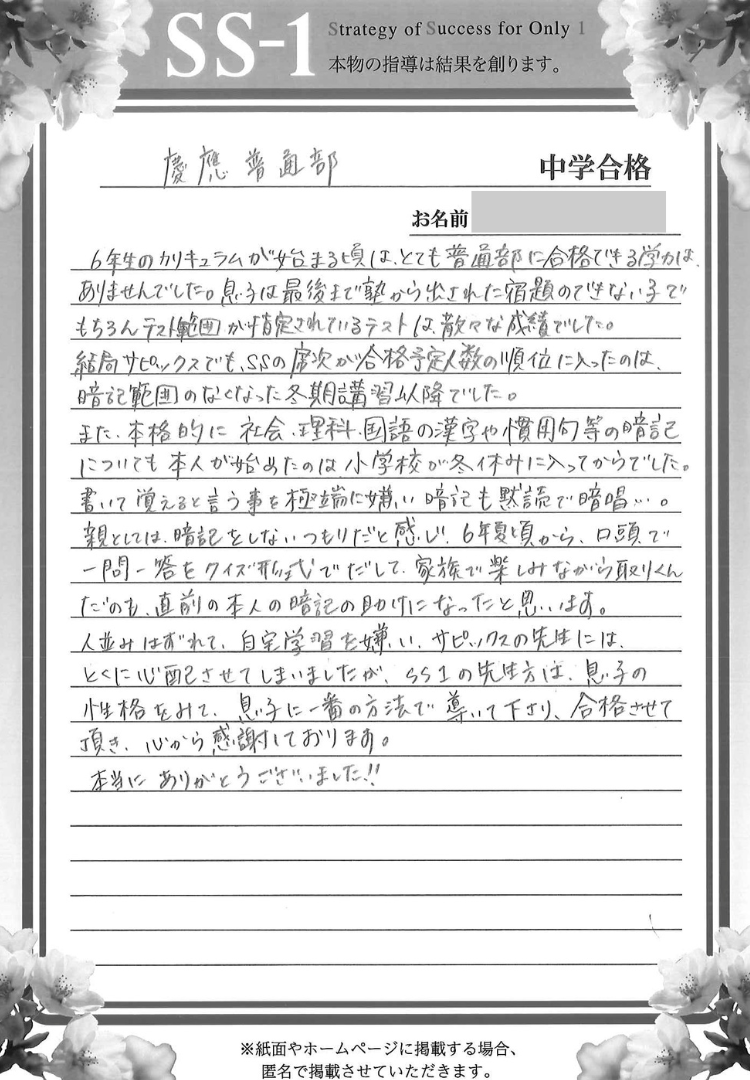 SS-1
Strategy of Success for Only 1
本物の指導は結果を創ります。
慶應普通部 中学合格
お名前
6年生のカリキュラムが始まる頃は、とても普通部に合格できる学力は、
ありませんでした。息子は最後まで塾から出された宿題のできない子で
もちろんテスト範囲が指定されているテストは、散々な成績でした。
結局サピックスでも、SSの席次が合格予定人数の順位に入ったのは、
暗記範囲のなくなった冬期講習以降でした。
また、本格的に社会、理科、国語の漢字や慣用句等の暗記
についても本人が始めたのは小学校が冬休みに入ってからでした。
書いて覚えると言う事を極端に嫌い暗記も黙読で暗唱…。
親としては、暗記をしないつもりだと感じ、6年夏頃から、口頭で
一問一答をクイズ形式でだして、家族で楽しみながら取りくん
だのも、直前の本人の暗記の助けになったと思います。
人並みはずれて、自宅学習を嫌い、サピックスの先生には、
とくに心配させてしまいましたが、SS1の先生方は、息子の
性格をみて、息子に一番の方法で導いて下さり、合格させて
頂き、心から感謝しております。
本当にありがとうございました!!
※紙面やホームページに掲載する場合、
匿名で掲載させていただきます。